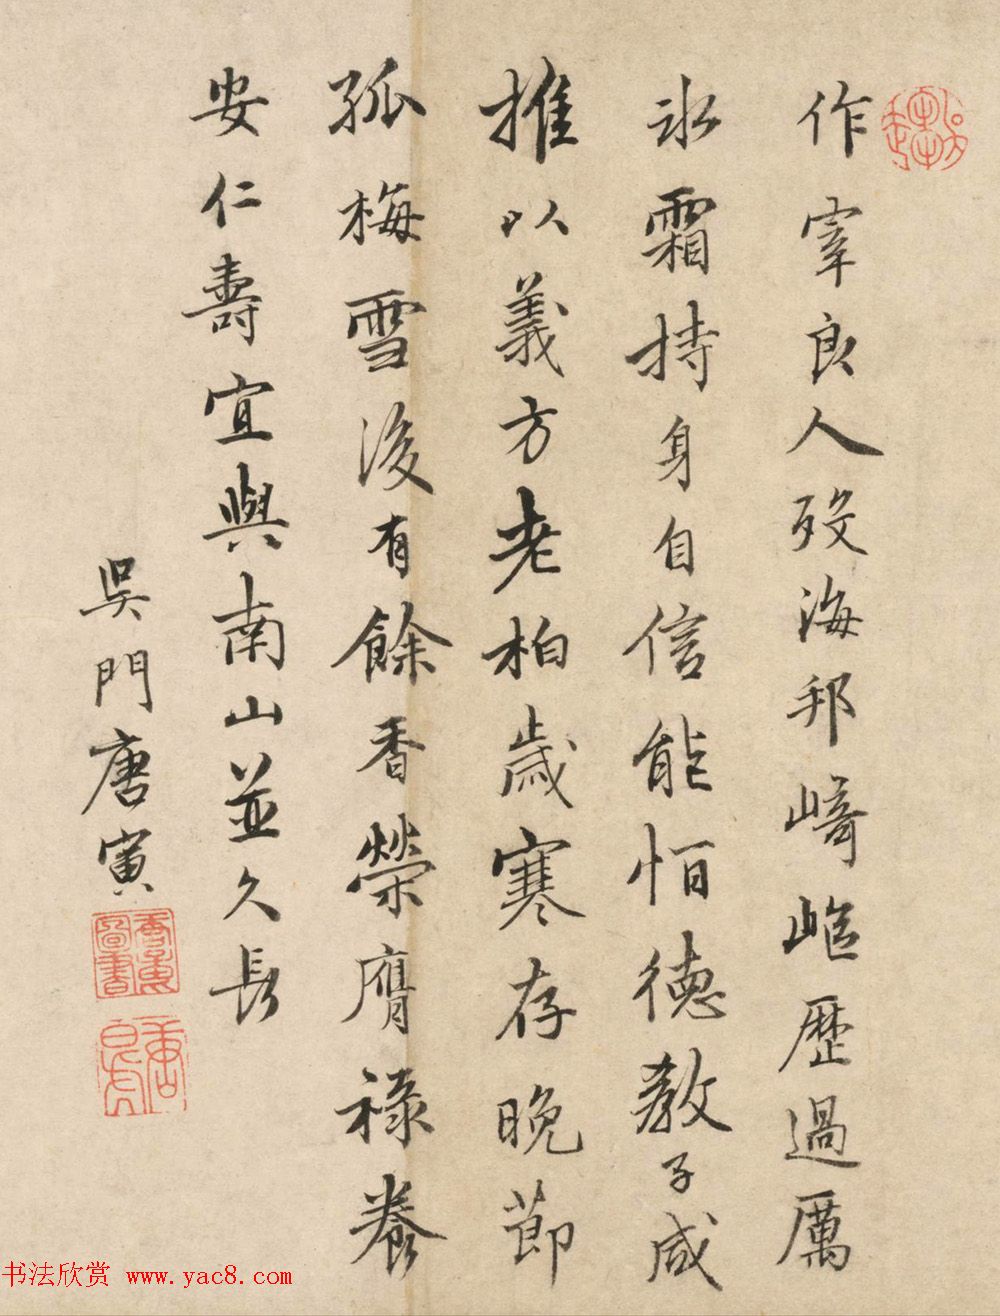 作宰良人歿海邦崎嶇歷過厲
冰霜持身自信能恒德教子咸
推以義方老柏歲寒存晚節
孤梅雪後有餘香榮膺祿養
安仁壽宜與南山並久長
吳門唐寅
書法欣赏 www.yac8.com